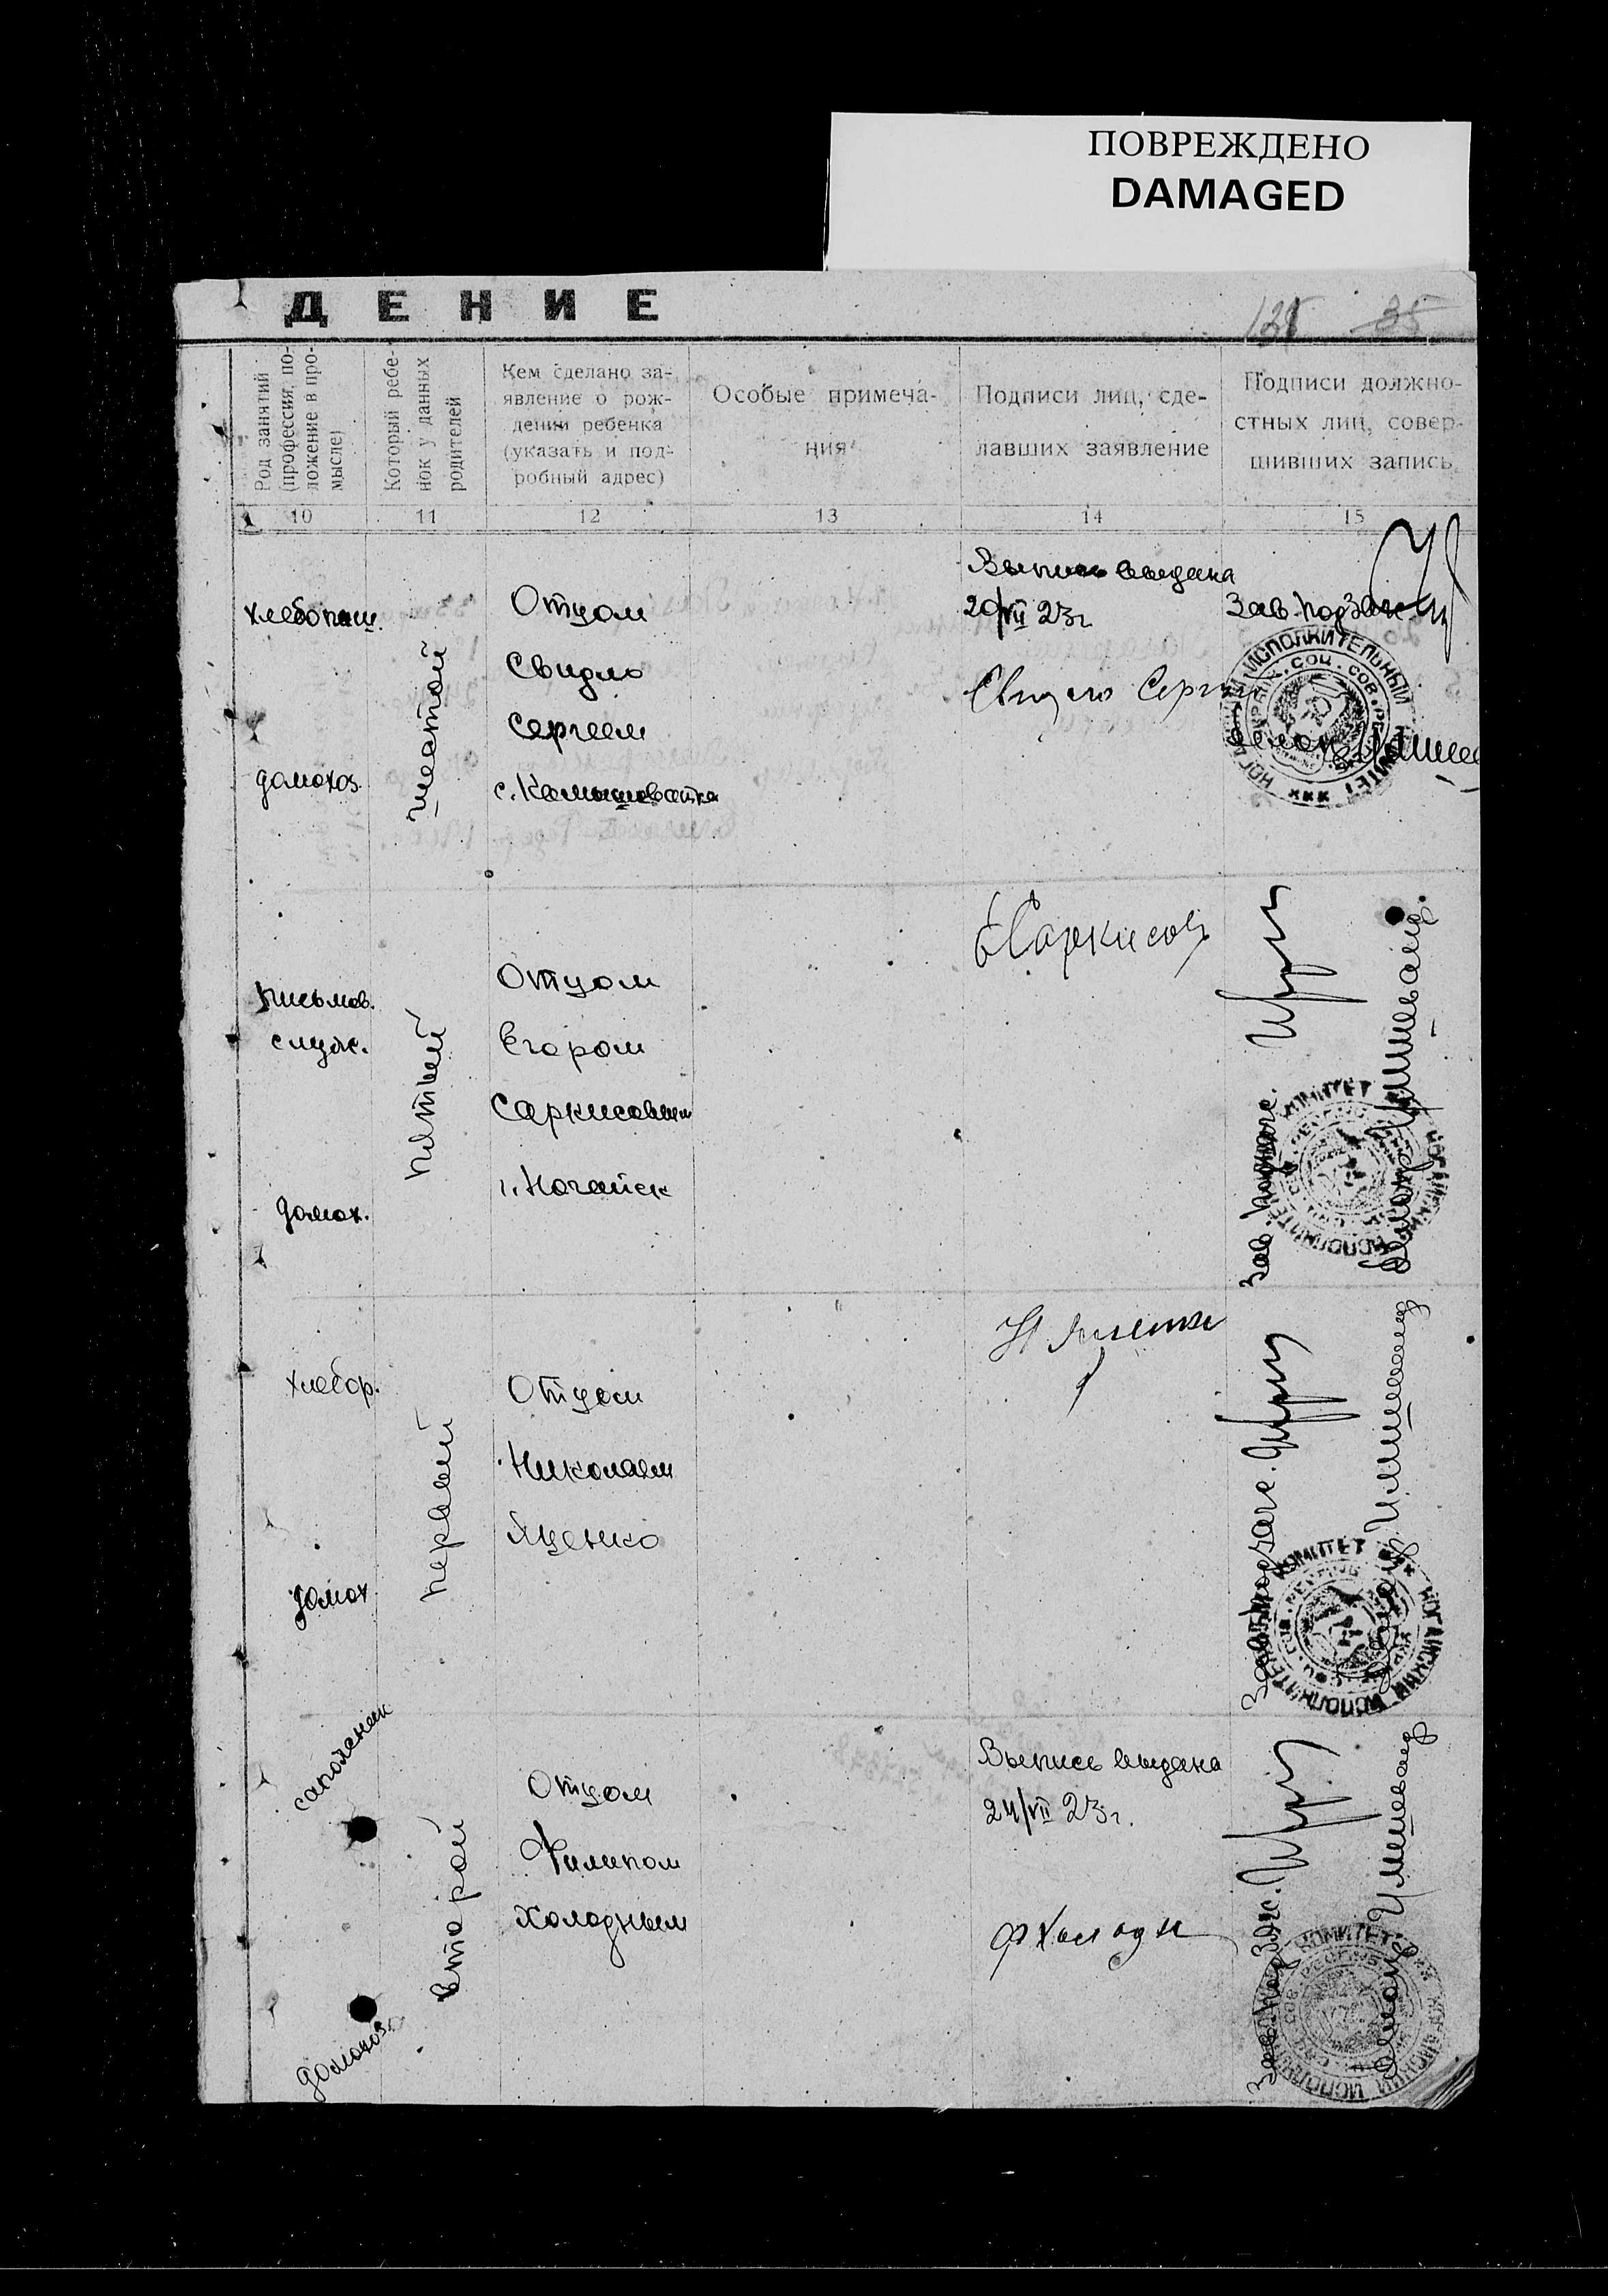 ПОВРЕЖДЕНО
DAMAGED
ДЕНИЕ
131 35
Род занятий
(профессия, по-
ложение в про-
мысле)
Который ребе-
нок у данных
родителей
Кем сделано за-
явление о рож-
дении ребенка
(указать и под-
робный адрес)
Особые примеча-
ния
Подписи лиц, сде-
лавших заявление
Подписи должно-
стных лиц, совер-
шивших запись
10 11 12 13 14 15
хлебопаш.
домохоз.
шестой
Отцом
Свидло
Сергеем
с. Камышеватка
Выпись выдана
20/VII 23г.
Свидло Сергей
Зав. подзагс
письмов.
служ.
домох.
пятый
Отцом
Егором
Саркисовым
г. Ногайск
Саркисов
Зав. подзагс.
хлебор.
домох
первый
Отцом
Николаем
Яценко
Н Яценко
Зав. подзагс.
сапожник
домохоз.
второй
Отцом
Филипом
Холодным
Выпись выдана
24/VII 23г.
Ф Холодн
Зав. подзагс.
НОГАЙСКИЙ ИСПОЛНИТЕЛЬНЫЙ КОМИТЕТ